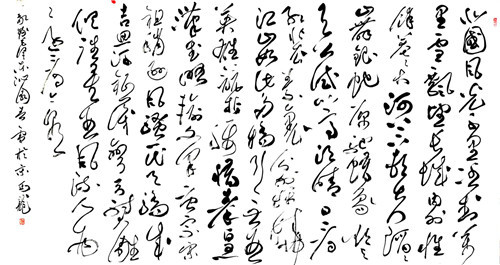 北国风光千里冰封万
里雪飘望长城内外惟
余莽莽大河上下顿失滔滔
山舞银蛇原驰蜡象欲与
天公试比高须晴日看
红装素裹分外妖娆
江山如此多娇引无数
英雄竞折腰惜秦皇
汉武略输文采唐宗宋
祖稍逊风骚一代天骄成
吉思汗只识弯弓射大雕
俱往矣数风流人物
还看今朝
录毛泽东沁园春雪于京